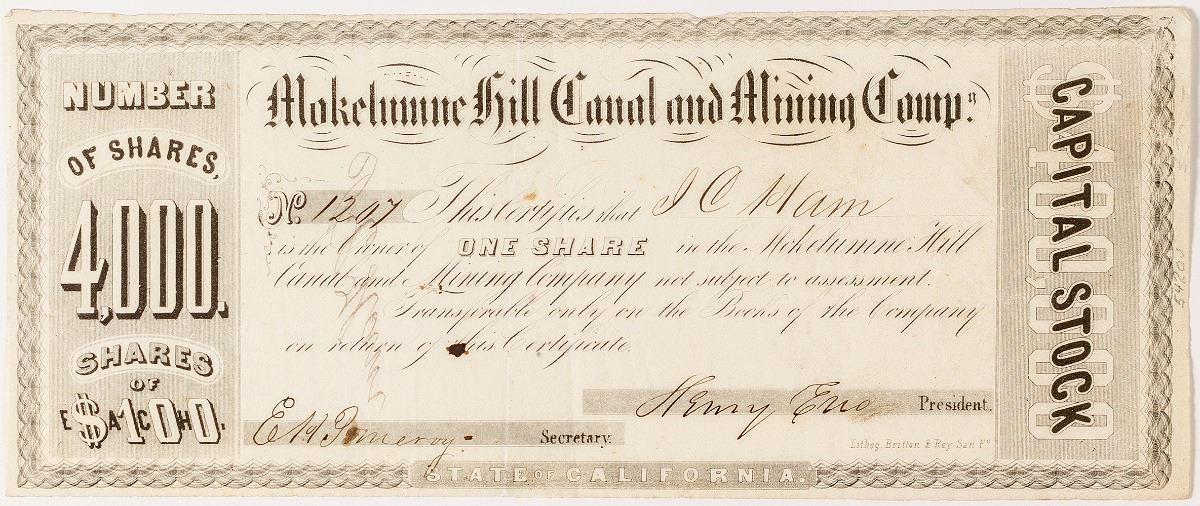 NUMBER
OF SHARES,
4,000.
SHARES
OF
$100
EACH.
Mokelumne Hill Canal and Mining Compy.
No. 1207 This Certifies that J C Ham
is the Owner of ONE SHARE in the Mokelumne Hill
Canal and Mining Company not subject to assessment.
Transferable only on the Books of the Company
on return of this Certificate.
Henry Eno President.
E H Pomeroy. Secretary.
Lithog. Britton & Rey San Fo
STATE OF CALIFORNIA.
$400,000
CAPITAL STOCK